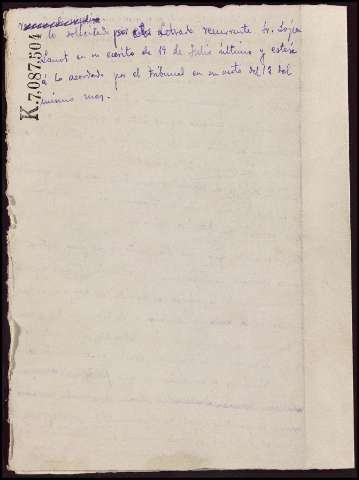 lo solicitado por el Letrado recurrente Sr. López
en su escrito de 19 de Julio último y estése
á lo acordado por el Tribunal en su auto del 12 del
mismo mes.-
K.7,087,504